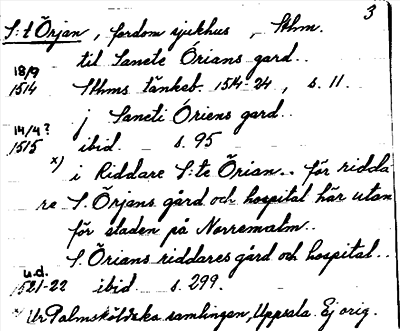 3
S:t Örjan, fordom sjukhus, Sthm.
til Sancte Örians gard..
18/9
1514 Sthms tänkeb. 1514-24, s. 11.
j Sancti Öriens gard..
14/4?
1515 ibid. s. 95
x) i Riddare S:te Örian.. för ridda
re S. Örjans gård och hospital här utan
för staden på Norremalm..
S. Örians riddares gård och hospital..
u.d.
1521-22 ibid. s. 299.
x) Ur Palmsköldska samlingen, Uppsala. Ej orig.